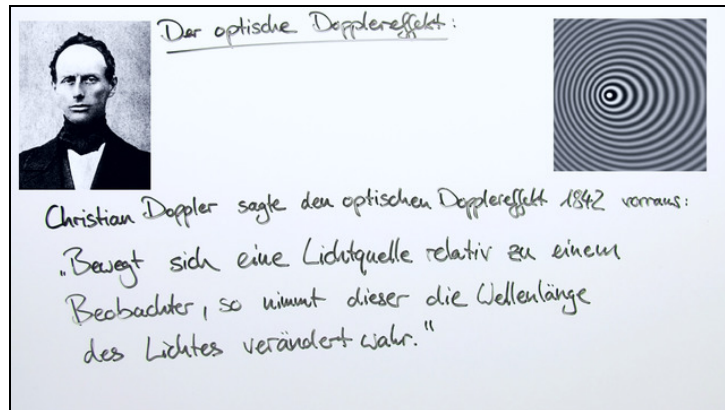 Der optische Dopplereffekt:
Christian Doppler sagte den optischen Dopplereffekt 1842 vorraus:
„Bewegt sich eine Lichtquelle relativ zu einem
Beobachter, so nimmt dieser die Wellenlänge
des Lichtes verändert wahr.“